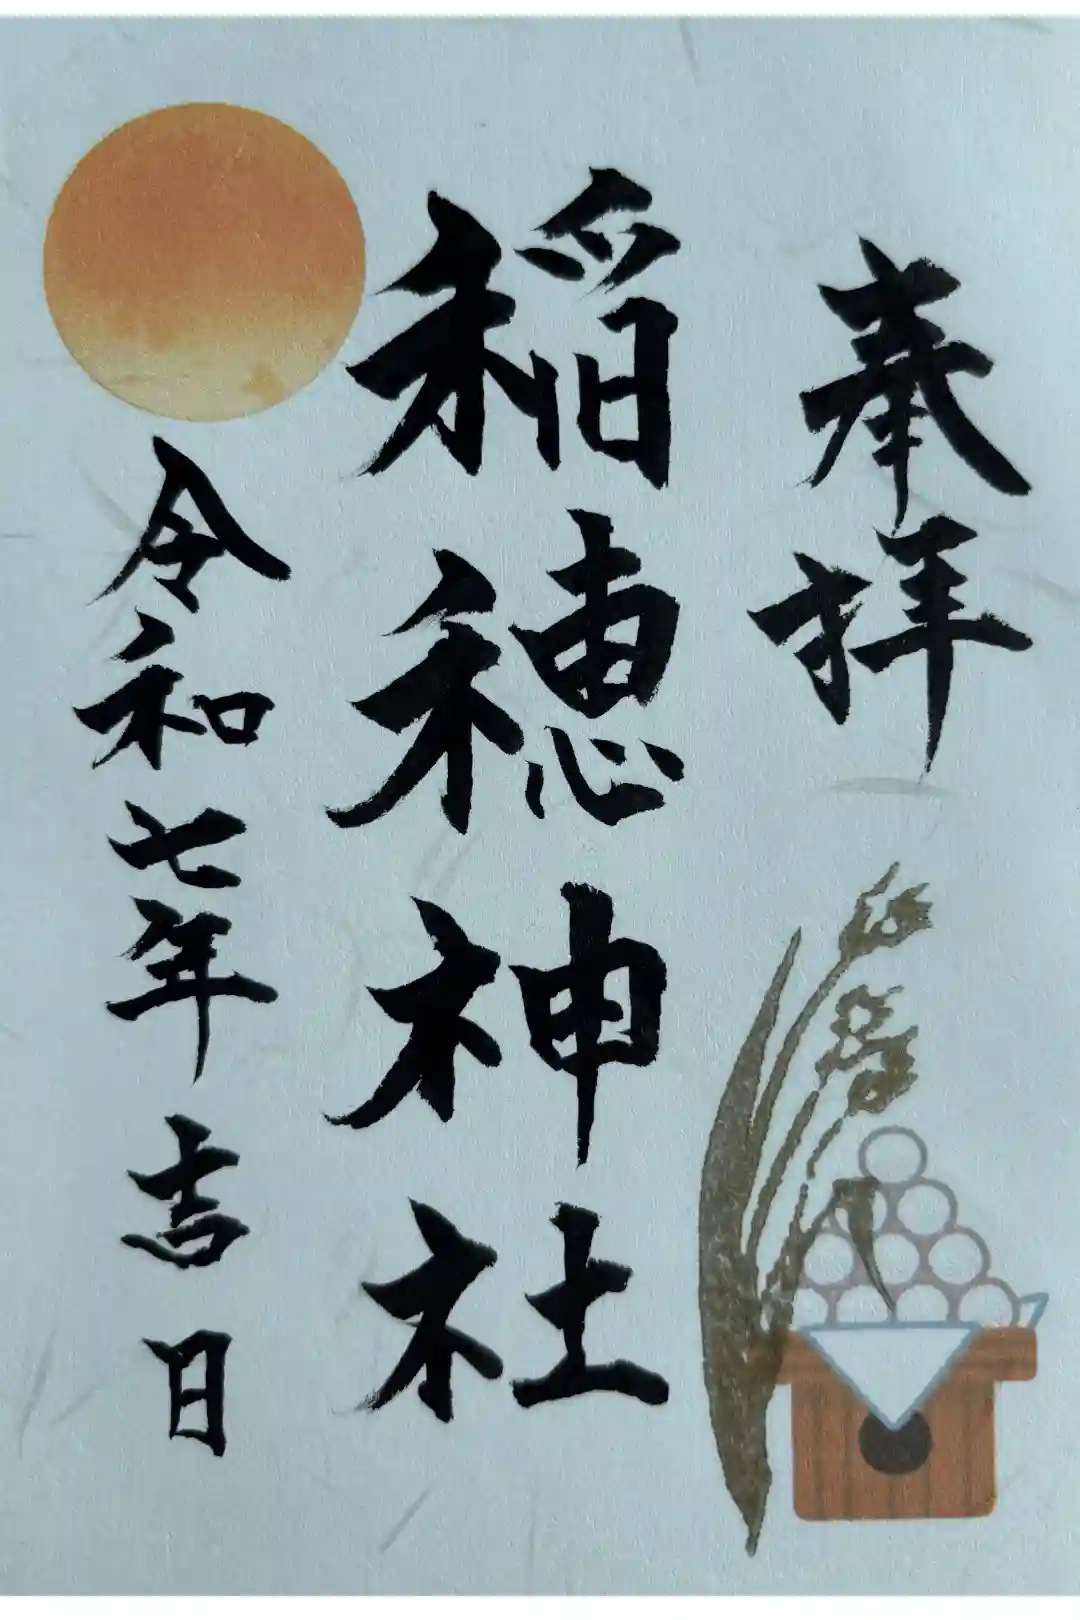 奉拝
稲穂神社
令和七年吉日